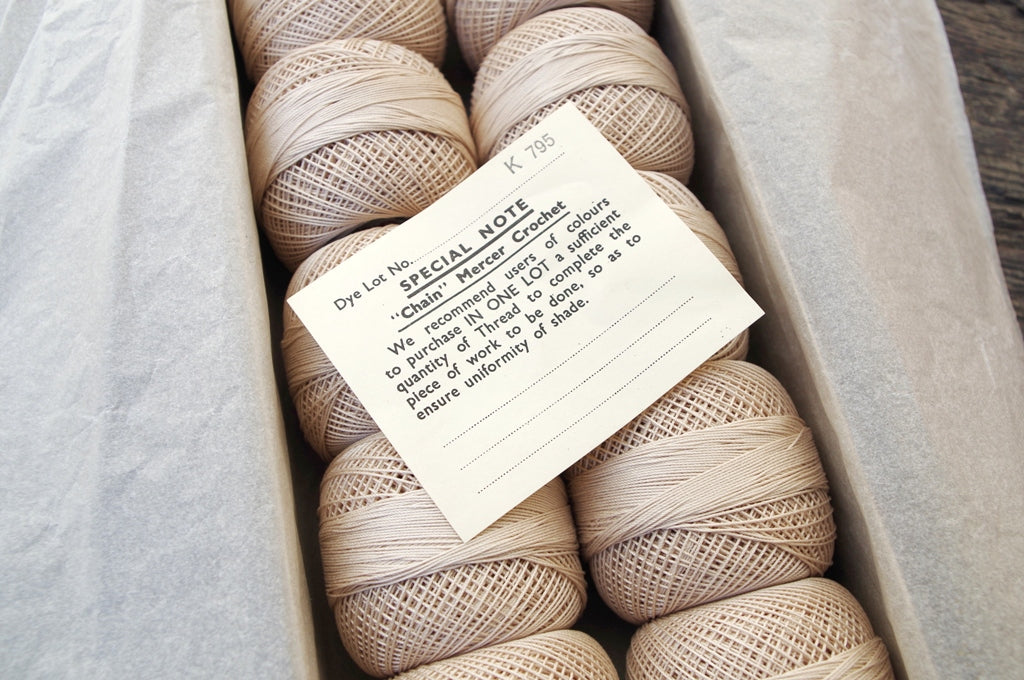 K 795
Dye Lot No.
SPECIAL NOTE
"Chain" Mercer Crochet
We recommend users of colours
to purchase IN ONE LOT a sufficient
quantity of Thread to complete the
piece of work to be done, so as to
ensure uniformity of shade.